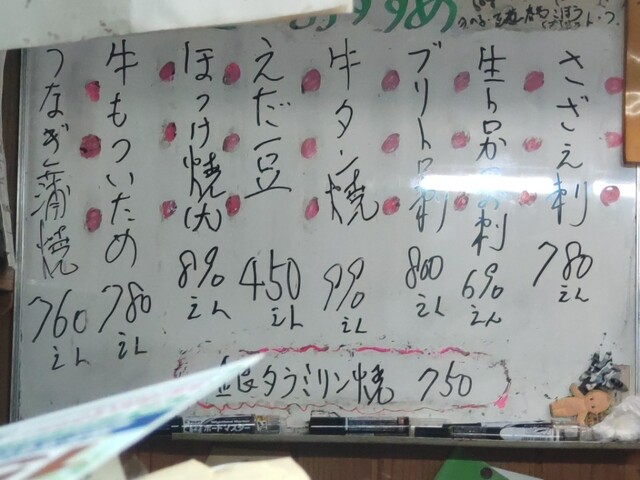 おすすめ
さざえ刺 780えん
生トロかつお刺 690えん
ブリトロ刺 800えん
牛タン焼 990えん
えだ豆 450えん
ほっけ焼(大) 890えん
牛もついため 780えん
うなぎ蒲焼 760えん
銀ダラミリン焼 750
ボードマスター